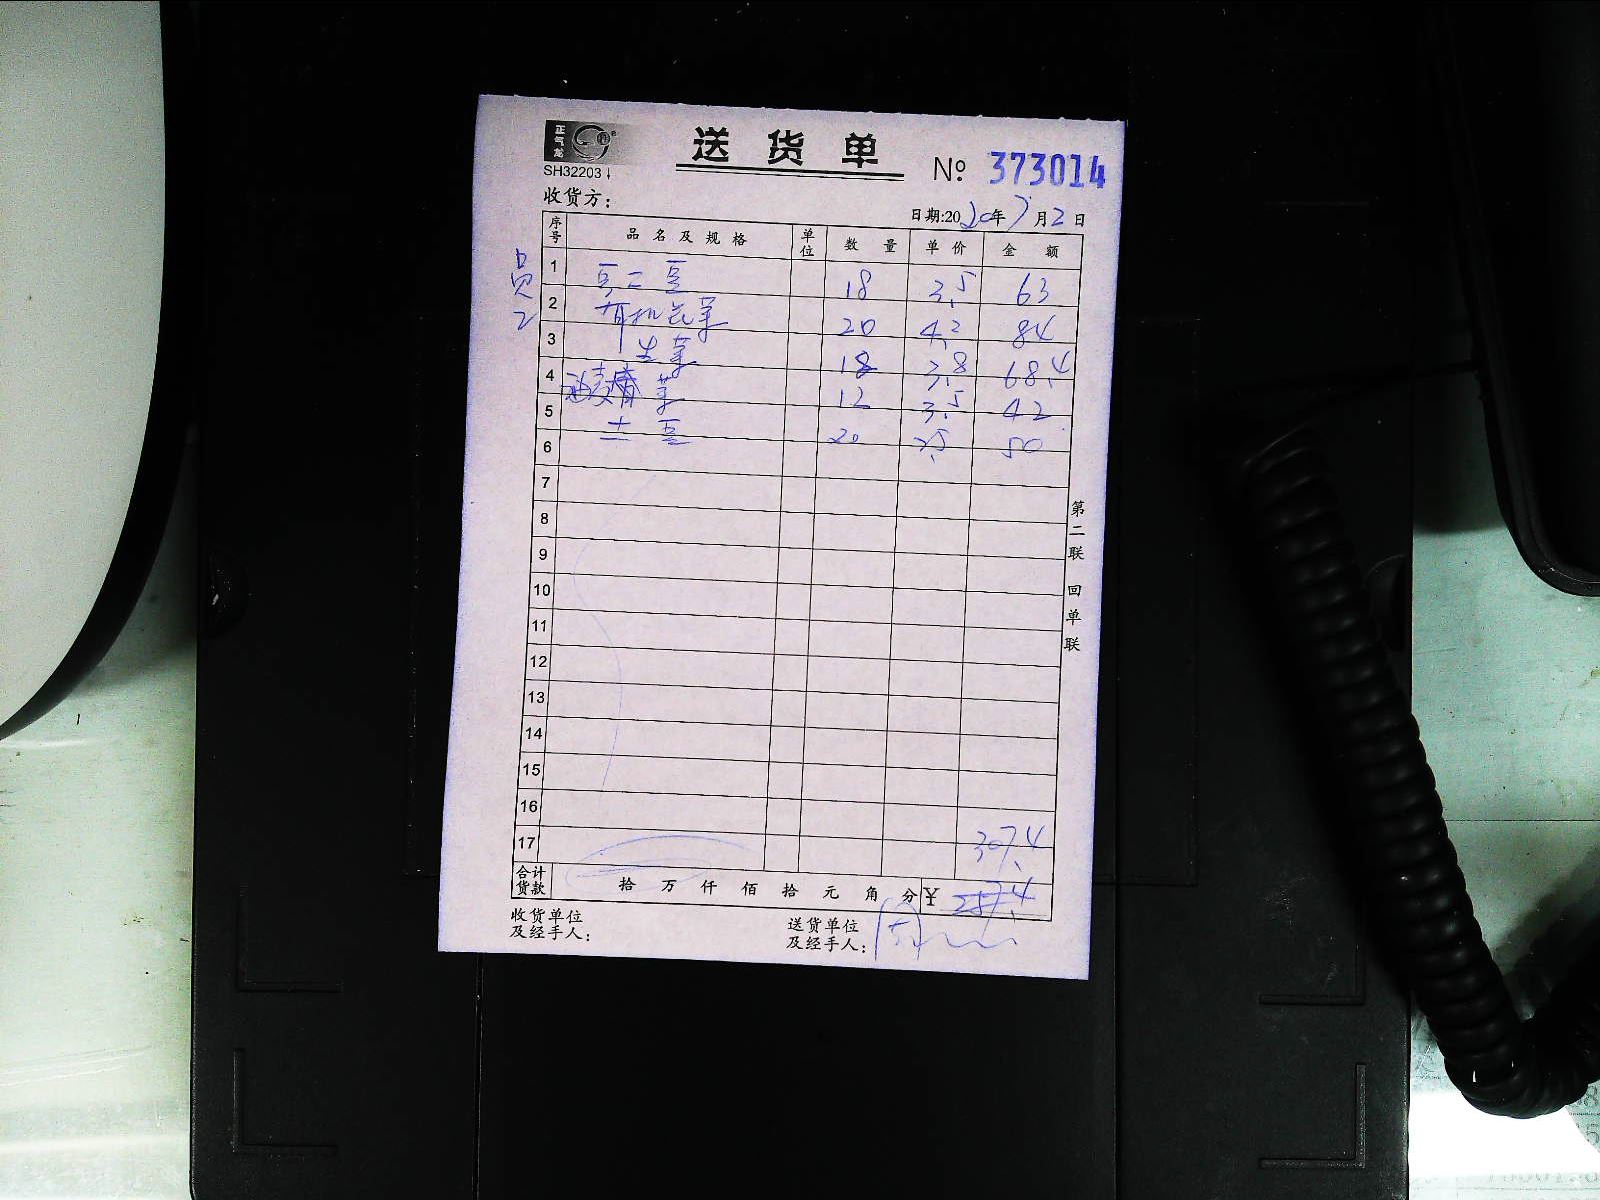 正气龙
SH32203
送货单 № 373014
收货方：
日期:2020年7月2日
序号 品名及规格 单位 数量 单价 金额
员工
1 18 3.5 63
2 有机花菜 20 4.2 84
3 生菜 18 3.8 68.4
4 菜 12 3.5 42
5 土豆 20 2.5 50
6
7
8
9
10
11
12
13
14
15
16
17 307.4
合计货款 拾 万 仟 佰 拾 元 角 分 ¥ 257.4
收货单位及经手人：
送货单位及经手人：
第二联 回单联